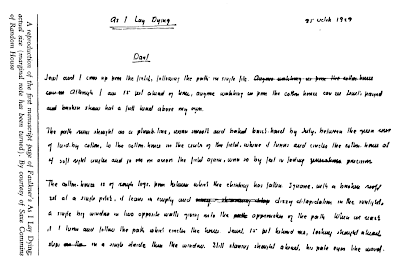 As I Lay Dying
Darl
Jewel and I come up from the field, following the path in single file. Anyone watching us from the cotton house
Although I am 15 feet ahead of him, anyone watching us from the cotton house can see Jewel's frayed
and broken straw hat a full head above my own.
The path runs straight as a plumb-line, worn smooth and baked brick-hard by July, between the green rows
of laid-by cotton, to the cotton house in the center of the field, where it turns and circles the cotton house at
4 soft right angles and so on across the field again, worn so by feet in fading precision
The cotton house is of rough logs, from between which the chinking has fallen. Square, with a broken roof
set at a single pitch, it leans in empty and dilapidation in the sunlight,
a single big window in two opposite walls giving onto the approaches of the path. When we reach
it I turn and follow the path which circles the house. Jewel, 15 feet behind me, looking straight ahead,
steps in a single stride the window. Still staring straight ahead, his pale eyes like wood
A reproduction of the first manuscript page of Faulkner's As I Lay Dying,
actual size (marginal note has been turned). By courtesy of Saxe Commins
of Random House